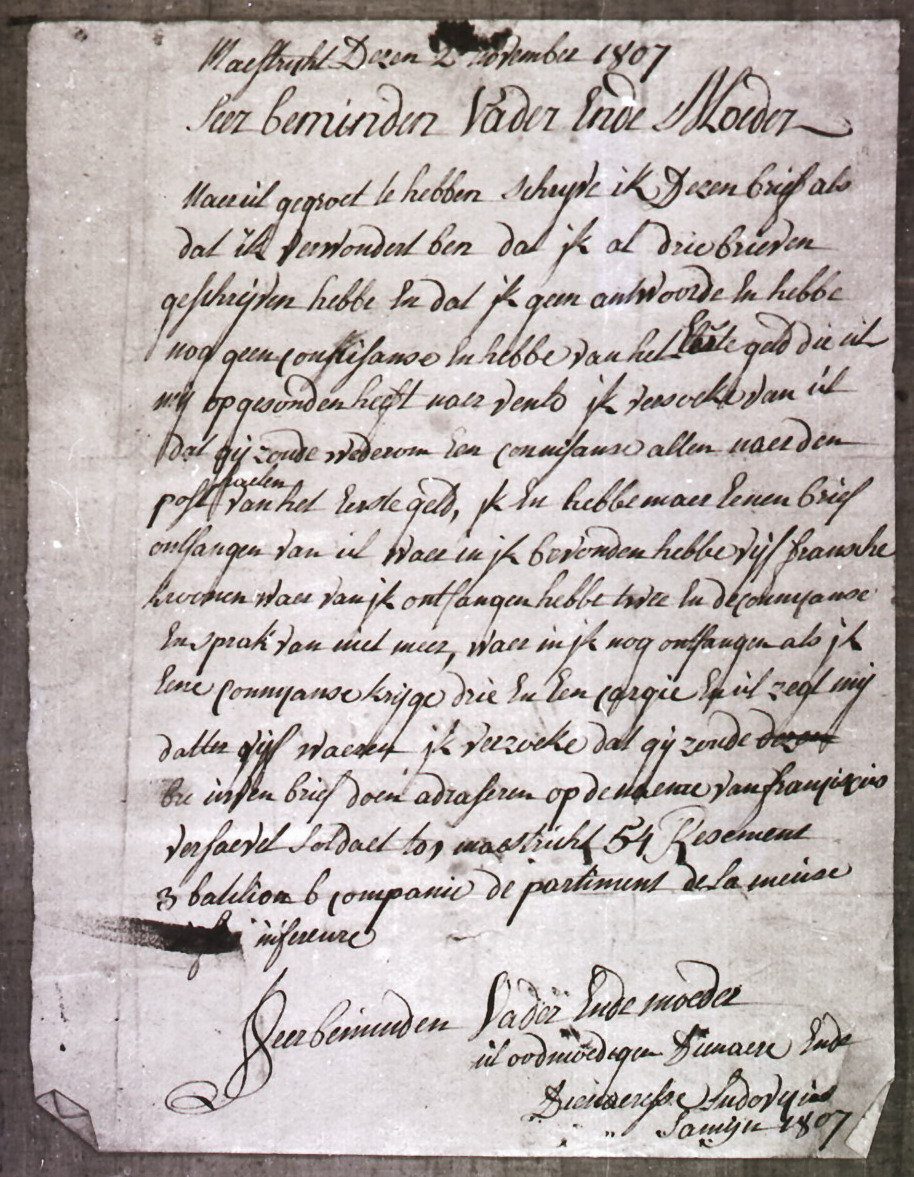 Maestricht Dezen 2 November 1807
Seer beminden Vader Ende Moeder
Naer ul gegroet te hebben schryve ik Dezen brief als
dat ik verwondert ben dat jk al drie brieven
geschreven hebbe En dat jk geen antwoorde En hebbe
nog geen En hebbe van het Eerste geld die ul
mij op gesonden heeft naer venlo jk versoeke van ul
dat gij zoude wederom Een connisanse naer den
post van het Eerste geld, jk En hebbe maer Eenen brief
ontfangen van ul waer in jk bevonden hebbe vijf fransche
kroonen waer van jk ontfangen hebbe twee En de
En sprak van niet meer, waer in jk nog ontfangen als jk
Eene krijge drie En Een En ul zegt mij
datter vijf waeren jk verzoeke dat gij zoude
brief doen adraseren op de naeme van
versaevel soldaet tot maestricht 54 Resement
3 batilion 6 companie de partiment de la meuse
infereure
Seer beminden Vader Ende moeder
ul oodmoedegen Dienaere Ende
Dienaeresse Ludovicus
Samijn 1807